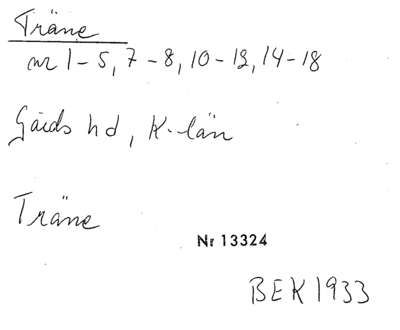 Träne
nr 1-5, 7-8, 10-12, 14-18
Gärds hd, K-län
Träne
Nr 13324
BEK 1933